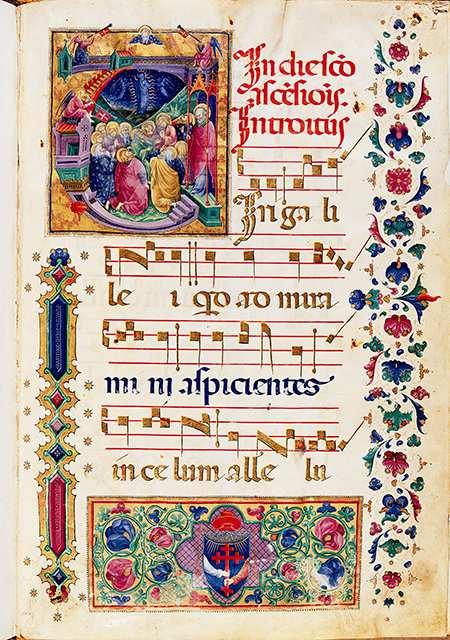 In die sc̄o
ascēsiōis.
Introitus
In ga li
le i qd ad mira
mi ni aspicientes
in ce lum alle lu